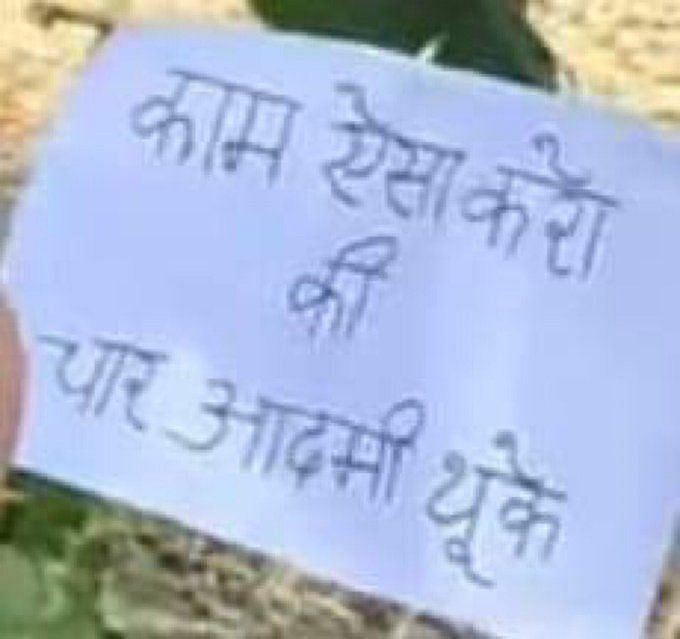 काम ऐसा करो
की
चार आदमी थूके